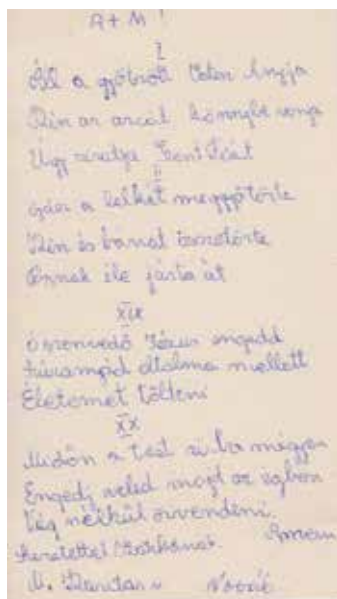 I
Áll a gyötrött Isten Anyja
Kín az arcát könnybe vonja
Úgy siratja Szent Fiát
II
lelkét meggyötörte
Kín és bánat összetörte
Ennek éle járta át
XIX
Ó szenvedő Jézus engedd
oltalma mellett
Életemet tölteni
XX
Midőn a test sírba mégyen
Engedj veled majd az égben
Vég nélkül örvendeni.
Amen
Szeretettel
M.